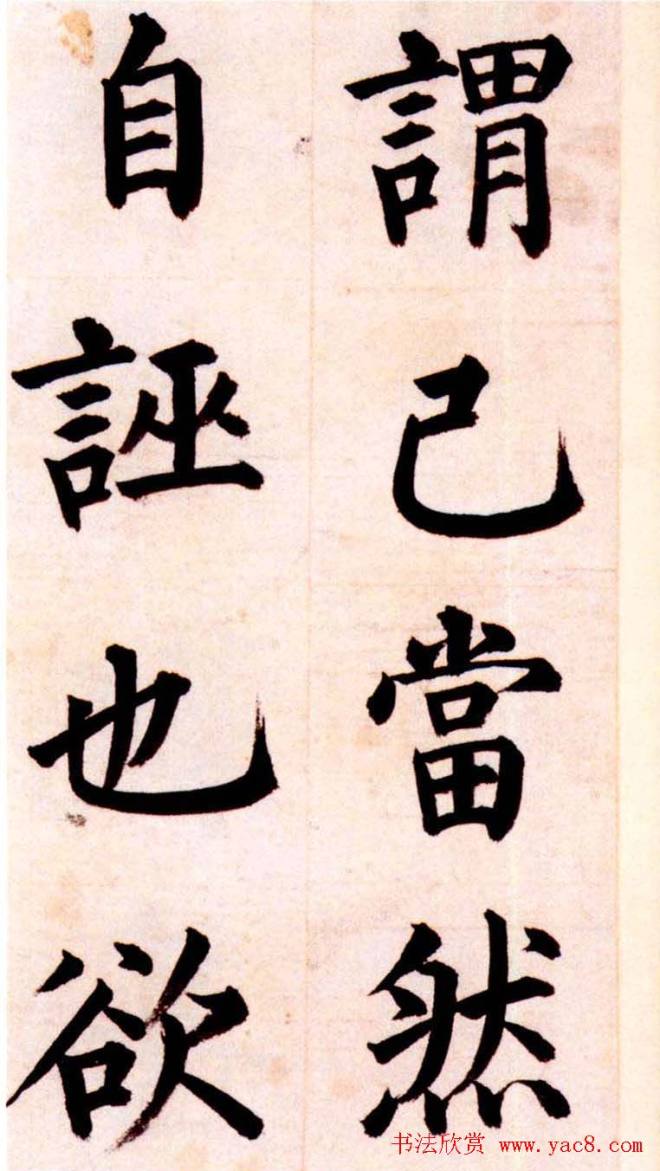 謂己當然
自誣也欲
书法欣赏 www.yac8.com